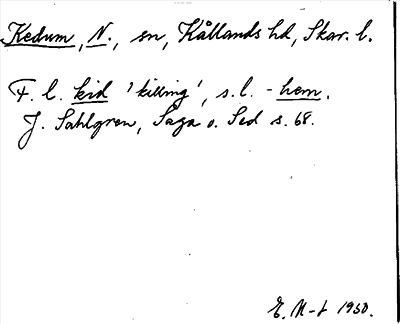 Kedum, N., sn, Kållands hd, Skar. l.
F. l. kid 'killing', s. l. -hem.
J. Sahlgren, Saga o. Sed s. 68.
E. N-t 1950.